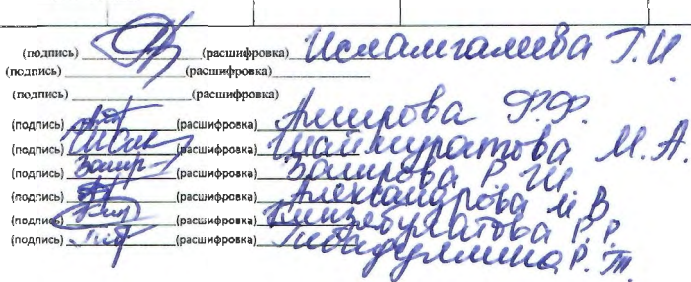 (подпись) (расшифровка) Исламгалиева Г.И
(подпись) (расшифровка)
(подпись) (расшифровка)
(подпись) (расшифровка) Амирова Ф.Ф.
(подпись) (расшифровка) Шаймуратова М.А.
(подпись) Заир (расшифровка) Заирова Р.Ш
(подпись) (расшифровка) Александрова М.В
(подпись) (расшифровка) Р.Р.
(подпись) (расшифровка) Гибадуллина Р.Т.